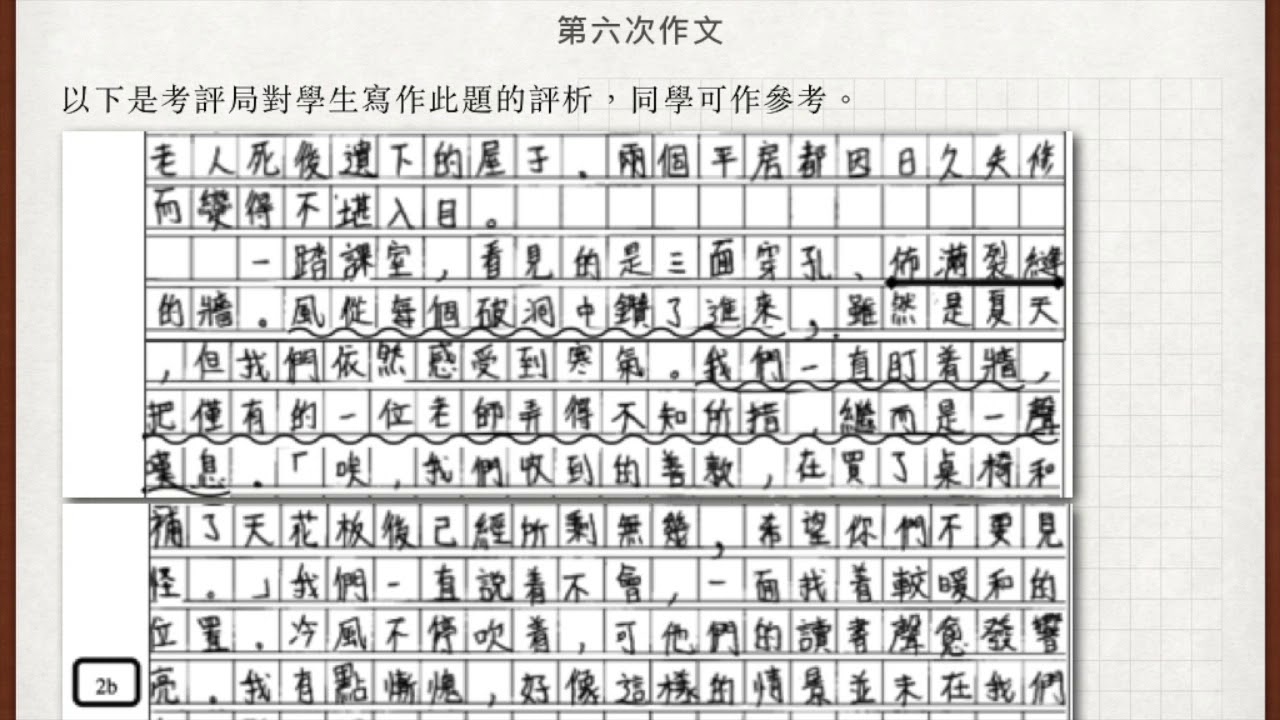 第六次作文
以下是考評局對學生寫作此題的評析，同學可作參考。
老人死後遺下的屋子。兩個平房都因日久失修
而變得不堪入目。
一踏課室，看見的是三面穿孔、佈滿裂縫
的牆。風從每個破洞中鑽了進來，雖然是夏天
，但我們依然感受到寒氣。我們一直盯着牆，
把僅有的一位老師弄得不知所措，繼而是一聲
嘆息。「唉，我們收到的善款，在買了桌椅和
補了天花板後已經所剩無幾，希望你們不要見
怪。」我們一直說着不會，一面找着較暖和的
位置。冷風不停吹着，可他們的讀書聲愈發響
亮。我有點慚愧，好像這樣的情景並未在我們
2b